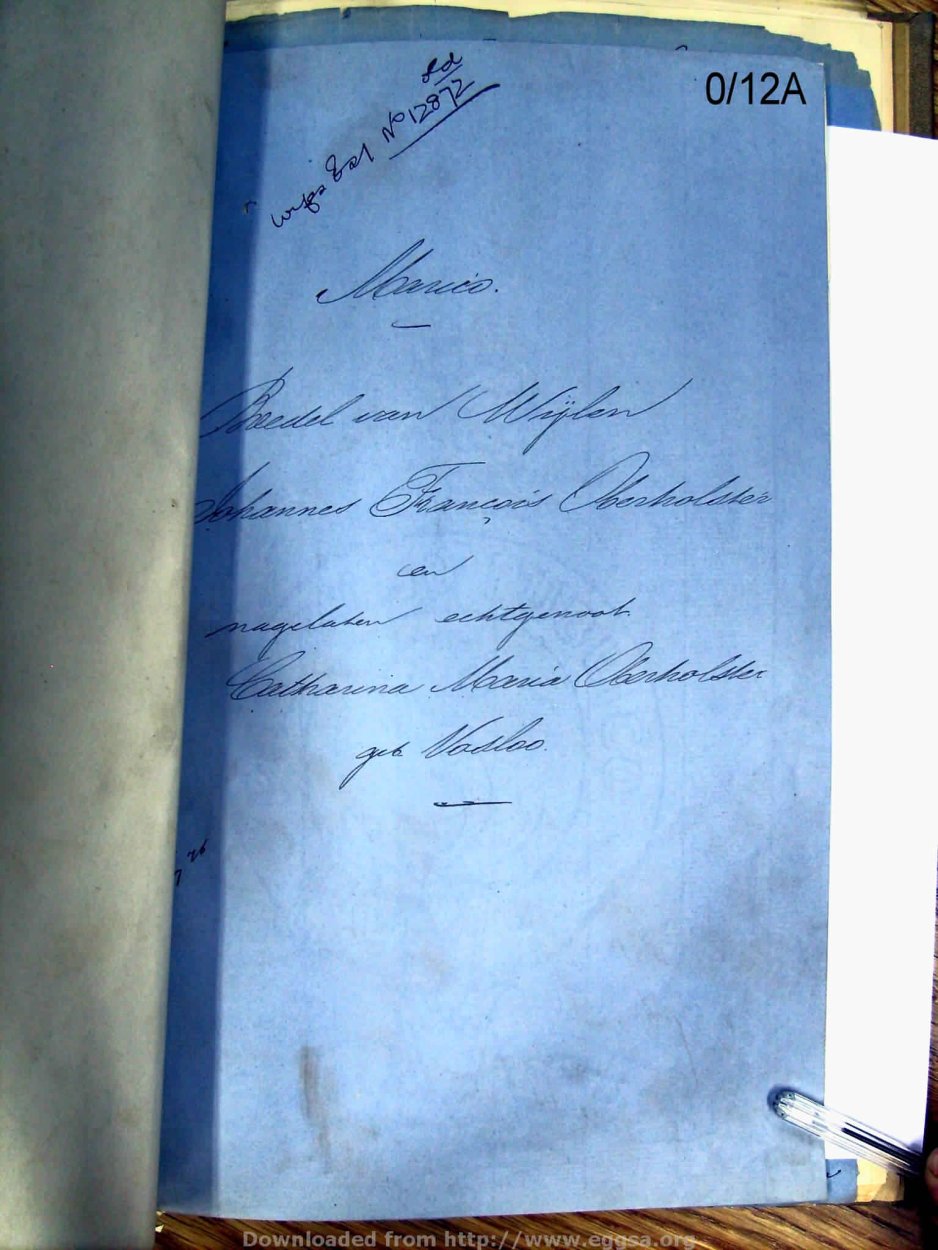 0/12A
wife's Est No 12872
Marico.
Boedel van Wijlen
Johannes Francois Oberholster
en
nagelaten echtgenoot
Catharina Maria Oberholster
geb Vosloo.
Downloaded from http://www.eggsa.org